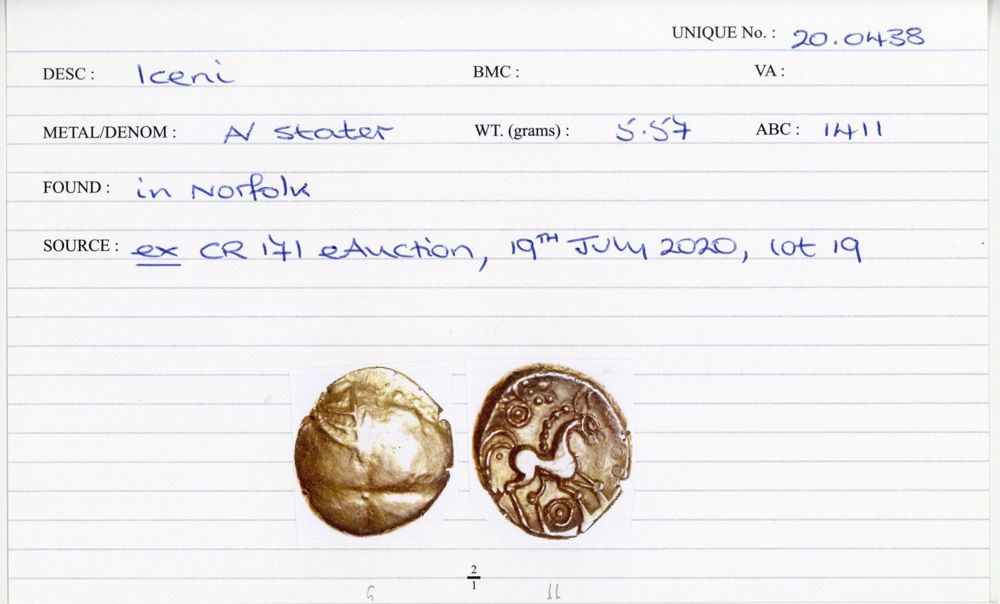 UNIQUE No. : 20.0438
DESC : Iceni BMC : VA :
METAL/DENOM : N stater WT. (grams) : 5.57 ABC : 1411
FOUND : in Norfolk
SOURCE : ex CR 171 eAuction, 19TH July 2020, lot 19
2
1